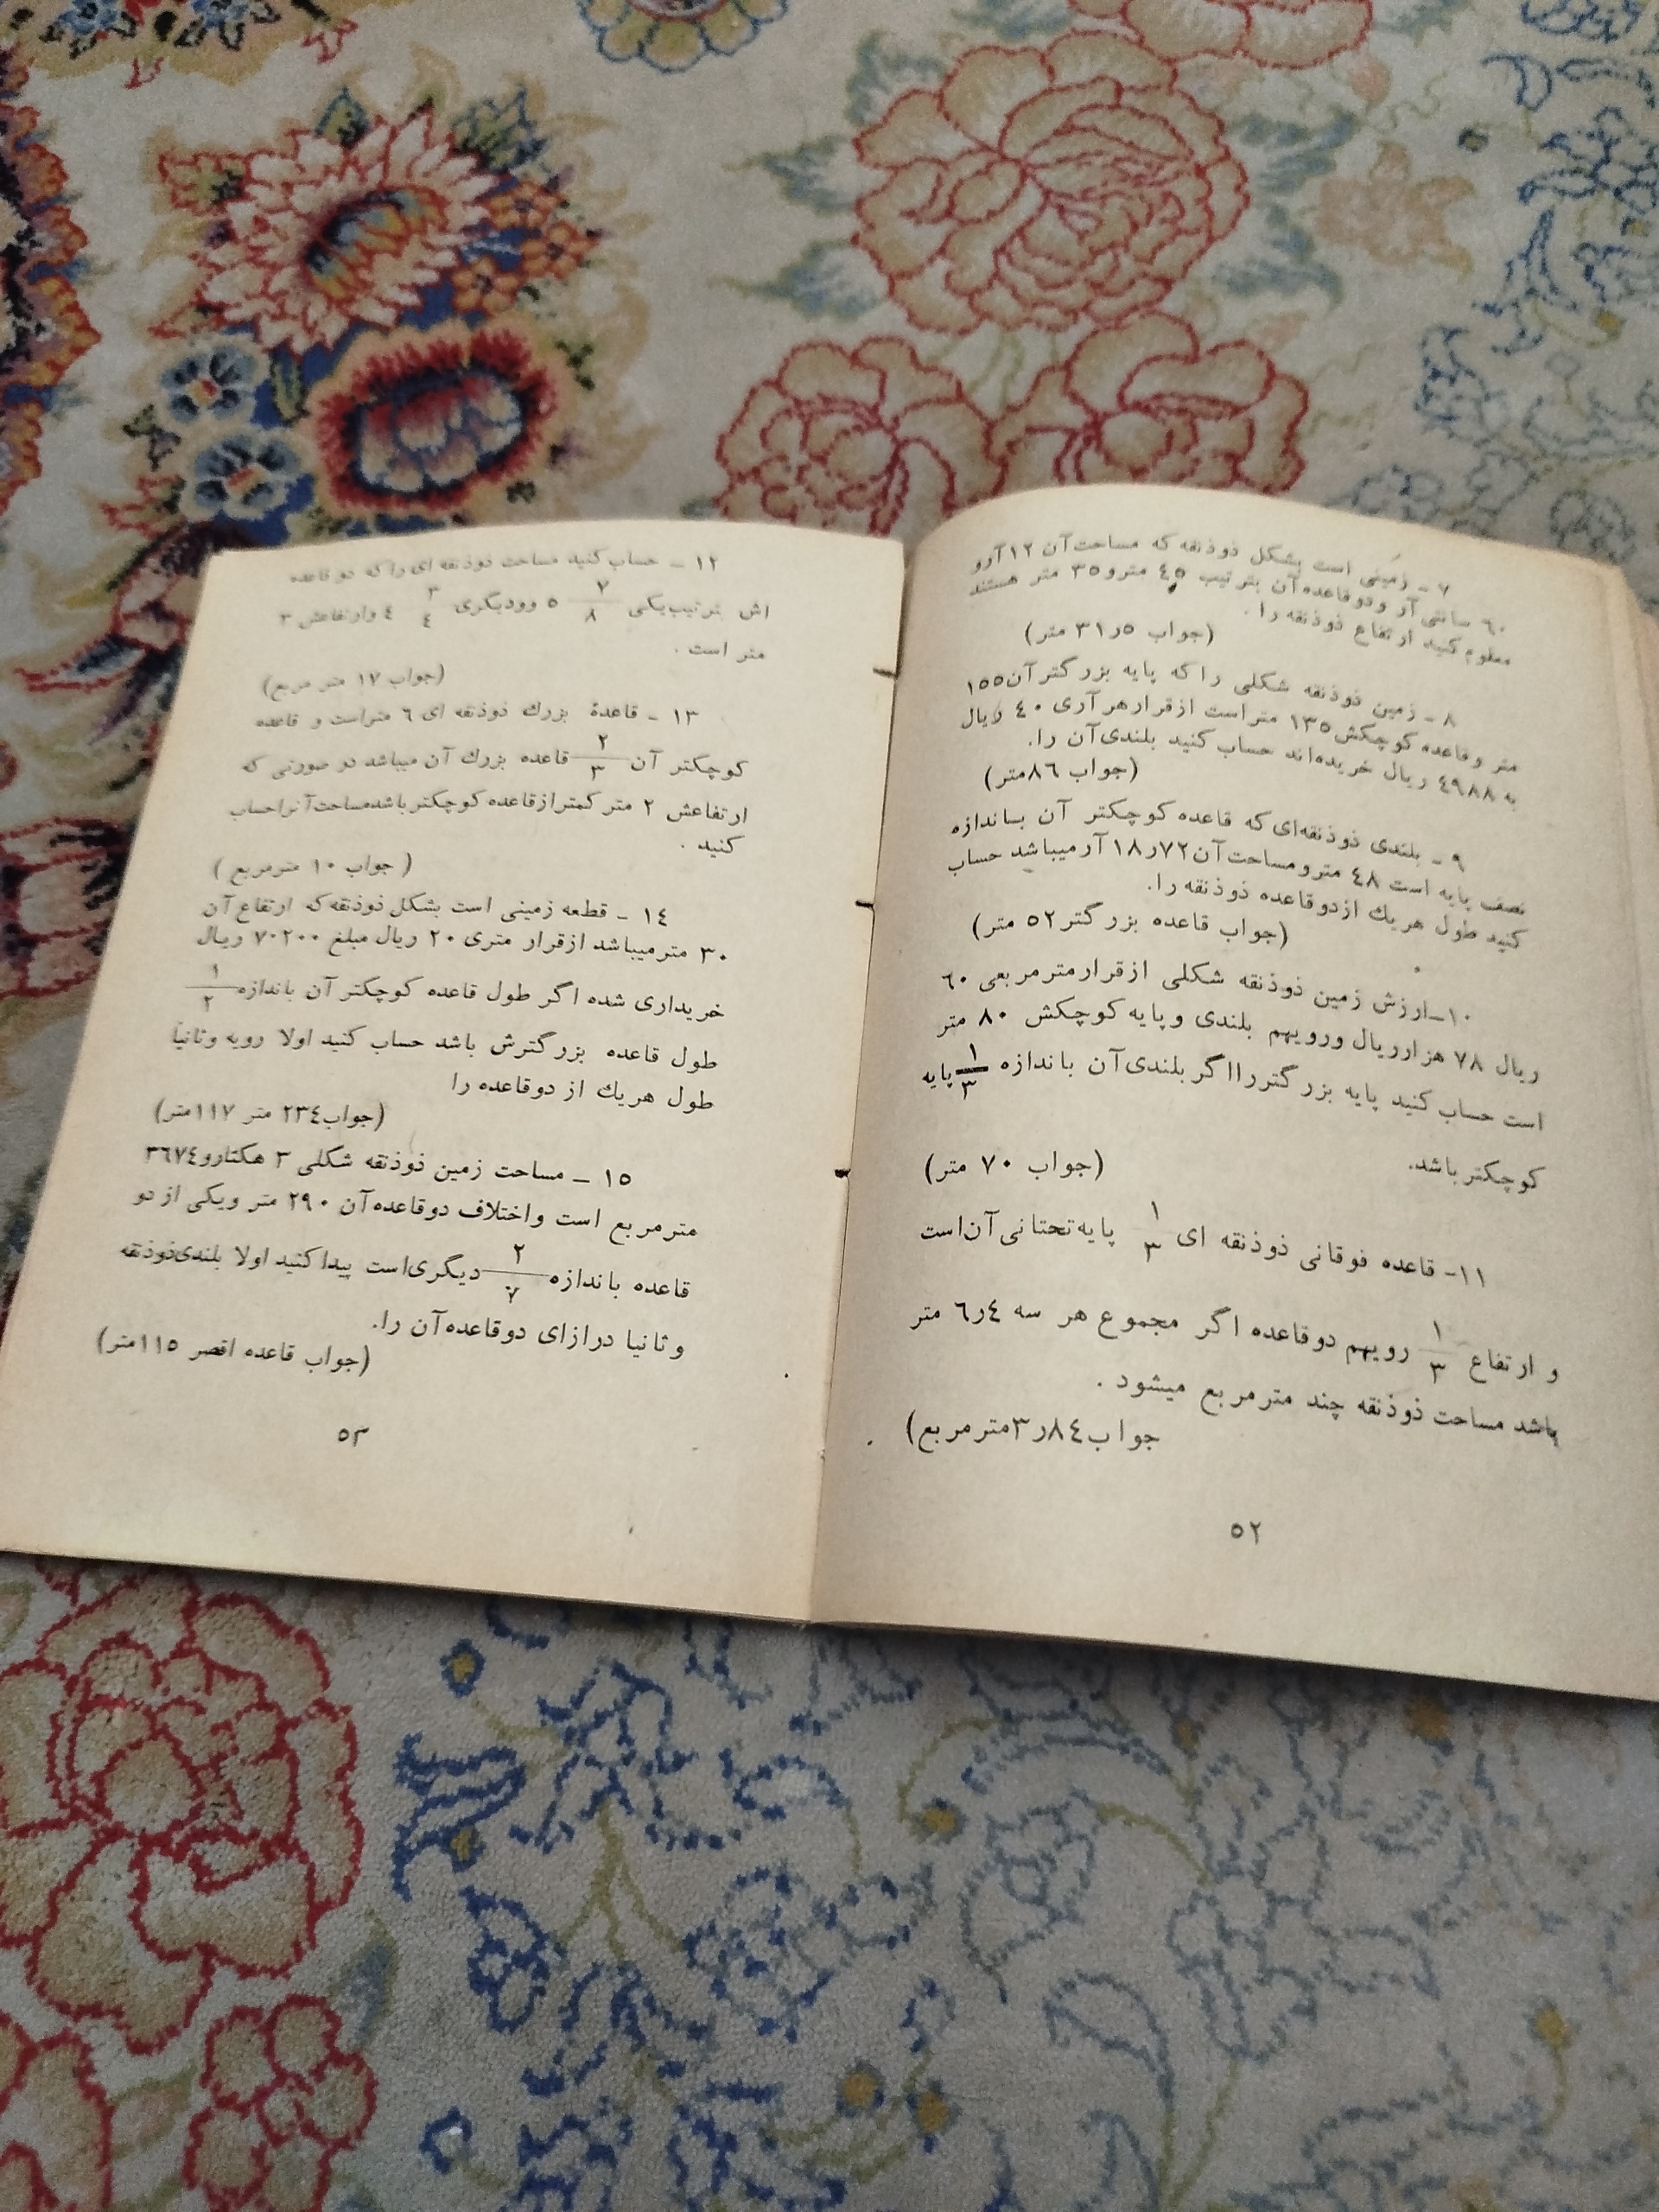 ۷ - زمینی است بشکل ذوذنقه که مساحت آن ۱۲ آر و
۶۰ سانتی آر و دو قاعده آن بترتیب ۴۵ متر و ۳۵ متر هستند
معلوم کنید ارتفاع ذوذنقه را .
(جواب ۳۱٫۵ متر)
۸ - زمین ذوذنقه شکلی را که پایه بزرگتر آن ۱۵۵
متر و قاعده کوچکش ۱۳۵ متر است از قرار هر آری ۴۰ ریال
به ۴۹۸۸ ریال خریده‌اند حساب کنید بلندی آن را.
(جواب ۸۶ متر)
۹ - بلندی ذوذنقه‌ای که قاعده کوچکتر آن بساندازه
نصف پایه است ۴۸ متر و مساحت آن ۱۸٫۷۲ آر میباشد حساب
کنید طول هریك از دو قاعده ذوذنقه را.
(جواب قاعده بزرگتر ۵۲ متر)
۱۰ـ ارزش زمین ذوذنقه شکلی از قرار متر مربعی ۶۰
ریال ۷۸ هزار ریال و رویهم بلندی و پایه کوچکش ۸۰ متر
است حساب کنید پایه بزرگتر را اگر بلندی آن باندازه ۱/۳ پایه
کوچکتر باشد.
(جواب ۷۰ متر)
۱۱- قاعده فوقانی ذوذنقه ای ۱/۳ پایه تحتانی آن است
و ارتفاع ۱/۳ رویهم دو قاعده اگر مجموع هر سه ۶٫۴ متر
باشد مساحت ذوذنقه چند متر مربع میشود .
جواب ۳٫۸۴ متر مربع)
۵۲
۱۲ - حساب کنید مساحت ذوذنقه ای را که دو قاعده
اش بترتیب یکی ۵ ۷/۸ و ودیگری ۴ ۳/۴ وارتفاعش ۳
متر است .
(جواب ۱۷ متر مربع)
۱۳ - قاعدهٔ بزرك ذوذنقه ای ۶ متر است و قاعده
کوچکتر آن ۲/۳ قاعده بزرك آن میباشد در صورتی که
ارتفاعش ۲ متر کمتر از قاعده کوچکتر باشد مساحت آنرا حساب
کنید .
( جواب ۱۰ متر مربع )
۱۴ - قطعه زمینی است بشکل ذوذنقه که ارتفاع آن
۳۰ متر میباشد از قرار متری ۲۰ ریال مبلغ ۷۰۲۰۰ ریال
خریداری شده اگر طول قاعده کوچکتر آن باندازه ۱/۲
طول قاعده بزرگترش باشد حساب کنید اولا رویه وثانیاً
طول هریك از دو قاعده را
(جواب ۲۳۴ متر ۱۱۷ متر)
۱۵ - مساحت زمین ذوذنقه شکلی ۳ هکتار و ۳۶۷۴
متر مربع است و اختلاف دو قاعده آن ۲۹۰ متر ویکی از دو
قاعده باندازه ۲/۷ دیگری است پیدا کنید اولا بلندی ذوذنقه
و ثانیا درازای دو قاعده آن را.
(جواب قاعده اقصر ۱۱۵ متر)
۵۳